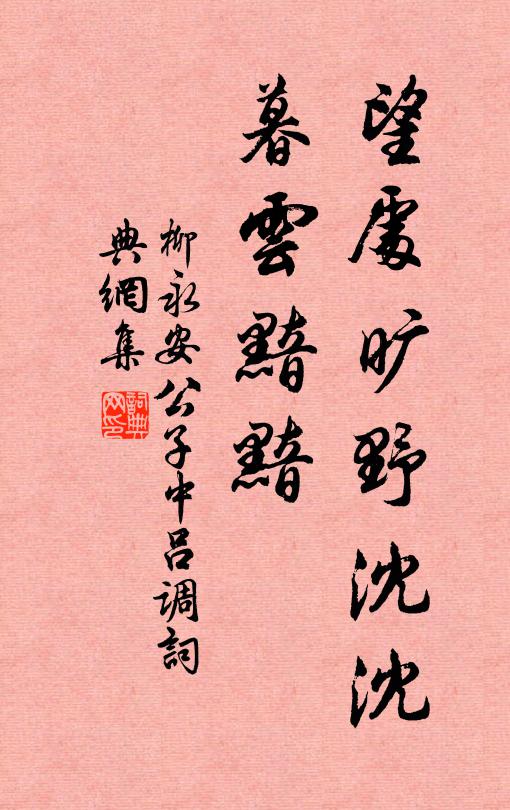 望處旷野沈沈
暮雲黯黯
柳永安公子中吕调詞
典網集
詞典网印